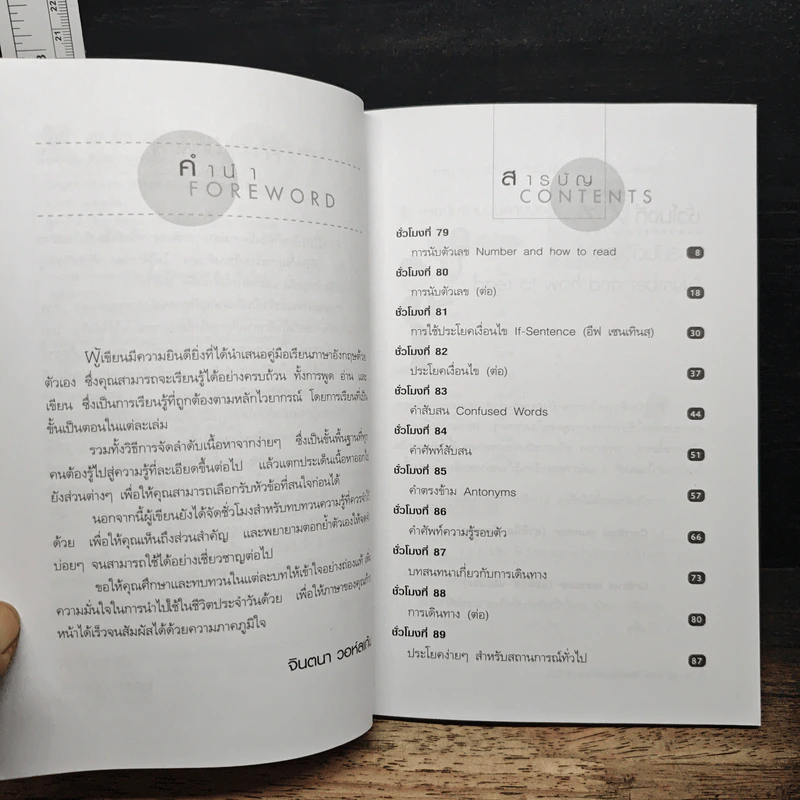 22
21
คำนำ
FOREWORD
ผู้เขียนมีความยินดียิ่งที่ได้นำเสนอคู่มือเรียนภาษาอังกฤษด้วย
ตัวเอง ซึ่งคุณสามารถจะเรียนรู้ได้อย่างครบถ้วน ทั้งการพูด อ่าน และ
เขียน ซึ่งเป็นการเรียนรู้ที่ถูกต้องตามหลักไวยากรณ์ โดยการเรียนที่เป็น
ขั้นเป็นตอนในแต่ละเล่ม
รวมทั้งวิธีการจัดลำดับเนื้อหาจากง่ายๆ ซึ่งเป็นขั้นพื้นฐานที่ทุก
คนต้องรู้ไปสู่ความรู้ที่ละเอียดขึ้นต่อไป แล้วแตกประเด็นเนื้อหาออกไป
ยังส่วนต่างๆ เพื่อให้คุณสามารถเลือกรับหัวข้อที่สนใจก่อนได้
นอกจากนี้ผู้เขียนยังได้จัดชั่วโมงสำหรับทบทวนความรู้ที่ควรจำไว้
ด้วย เพื่อให้คุณเห็นถึงส่วนสำคัญ และพยายามตอกย้ำตัวเองให้จดจำ
บ่อยๆ จนสามารถใช้ได้อย่างเชี่ยวชาญต่อไป
ขอให้คุณศึกษาและทบทวนในแต่ละบทให้เข้าใจอย่างถ่องแท้
ความมั่นใจในการนำไปใช้ในชีวิตประจำวันด้วย เพื่อให้ภาษาของคุณก้าว
หน้าได้เร็วจนสัมผัสได้ด้วยความภาคภูมิใจ
จินตนา
สารบัญ
CONTENTS
ชั่วโมงที่ 79
การนับตัวเลข Number and how to read 8
ชั่วโมงที่ 80
การนับตัวเลข (ต่อ) 18
ชั่วโมงที่ 81
การใช้ประโยคเงื่อนไข If-Sentence (อีฟ เซนเทินส) 30
ชั่วโมงที่ 82
ประโยคเงื่อนไข (ต่อ) 37
ชั่วโมงที่ 83
คำสับสน Confused Words 44
ชั่วโมงที่ 84
คำศัพท์สับสน 51
ชั่วโมงที่ 85
คำตรงข้าม Antonyms 57
ชั่วโมงที่ 86
คำศัพท์ความรู้รอบตัว 66
ชั่วโมงที่ 87
บทสนทนาเกี่ยวกับการเดินทาง 73
ชั่วโมงที่ 88
การเดินทาง (ต่อ) 80
ชั่วโมงที่ 89
ประโยคง่ายๆ สำหรับสถานการณ์ทั่วไป 87